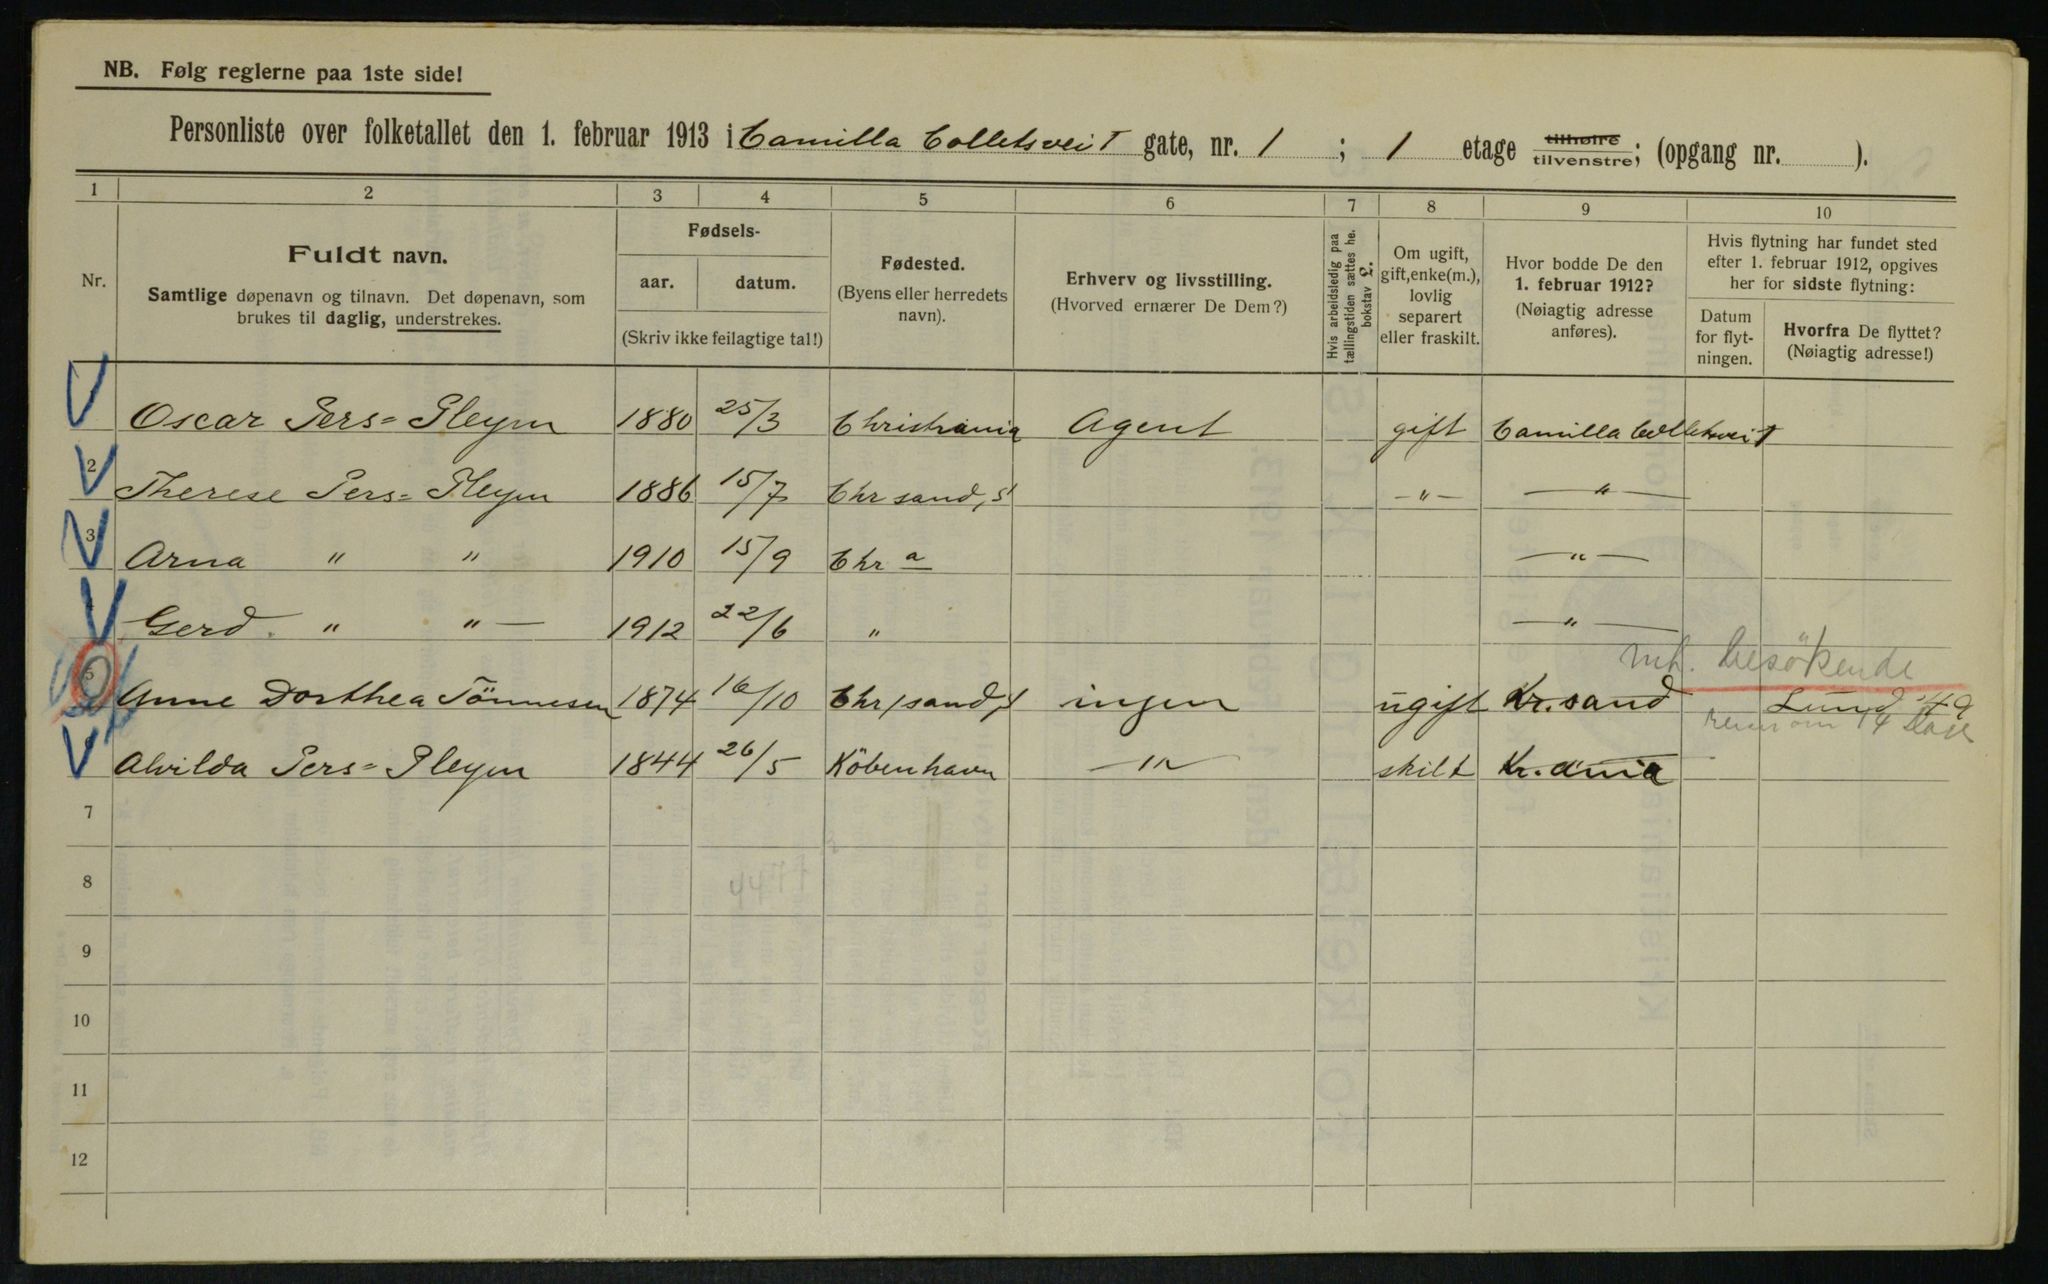 NB. Følg reglerne paa 1ste side!
Personliste over folketallet den 1. februar 1913 i Camilla Colletsvei 1 gate, nr. 1 ; 1 etage tilhøire tilvenstre; (opgang nr. ).
1 2 3 4 5 6 7 8 9 10
Nr.
Fuldt navn.
Samtlige døpenavn og tilnavn. Det døpenavn, som
brukes til daglig, understrekes.
Fødsels-
aar. datum.
(Skriv ikke feilagtige tal!)
Fødested.
(Byens eller herredets
navn).
Erhverv og livsstilling.
(Hvorved ernærer De Dem?)
Hvis arbeidsledig paa
tællingstiden sættes he.
bokstav L.
Om ugift,
gift, enke(m.),
lovlig
separert
eller fraskilt.
Hvor bodde De den
1. februar 1912?
(Nøiagtig adresse
anføres).
Hvis flytning har fundet sted
efter 1. februar 1912, opgives
her for sidste flytning:
Datum
for flyt-
ningen.
Hvorfra De flyttet?
(Nøiagtig adresse!)
Oscar Pers= Pleym 1880 25/3 Christiania Agent gift Camilla Colletsvei 1
2 Therese Pers= Pleym 1886 15/7 Chrsand, S -"- -"-
3 Arna " " 1910 15/9 Chr a -"-
4 Gerd " " - 1912 22/6 " -"-
mt. besökende
5 Anne Dorthea Tönnesen 1874 16/10 Chr/sand, S ingen ugift Kr.sand Lund
reiser om 14 Dage
Alvilda Pers= Pleym 1844 26/5 Köbenhavn -"- skilt Kr.ania
7
8
9
10
11
12